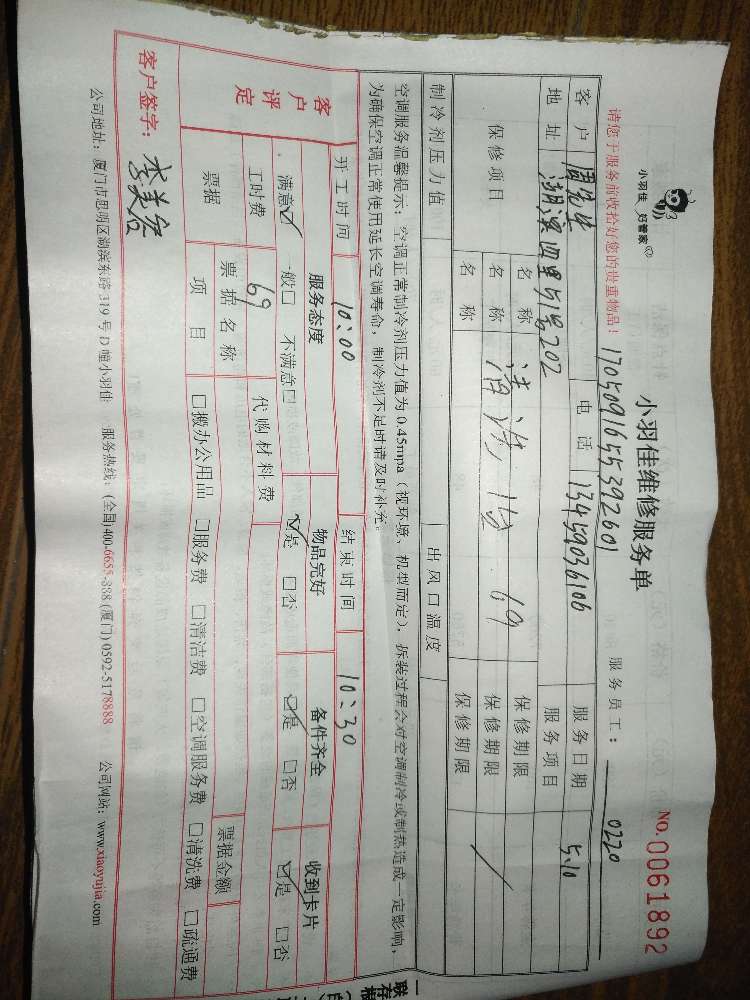 小羽佳 好管家
小羽佳维修服务单
No.0061892
请您于服务前收拾好您的贵重物品！
1705091655392601
服务员工： 0220
客户 周先生 电话 13459036106 服务日期 5.10
地址 湖滨四里51号202 服务项目
保修项目 名称 保修期限
名称 清洗 69 保修期限
名称 保修期限
制冷剂压力值 出风口温度
空调服务温馨提示：空调正常制冷剂压力值为0.45mpa（视环境、机型而定），拆装过程会对空调制冷或制热造成一定影响，
为确保空调正常使用延长空调寿命，制冷剂不足时请及时补充。
开工时间 10:00 结束时间 10:30
客户评定 服务态度 物品完好 备件齐全 收到卡片
满意☑ 一般□ 不满意□ ☑是 □否 ☑是 □否 ☑是 □否
工时费 69 代购材料费
票据 票据名称 票据金额
项目 □搬办公用品 □服务费 □清洁费 □空调服务费 □清洗费 □疏通费
客户签字：
公司地址：厦门市思明区湖滨东路319号D幢小羽佳 服务热线：(全国)400-6655-388 (厦门)0592-5178888 公司网站：www.xiaoyujia.com